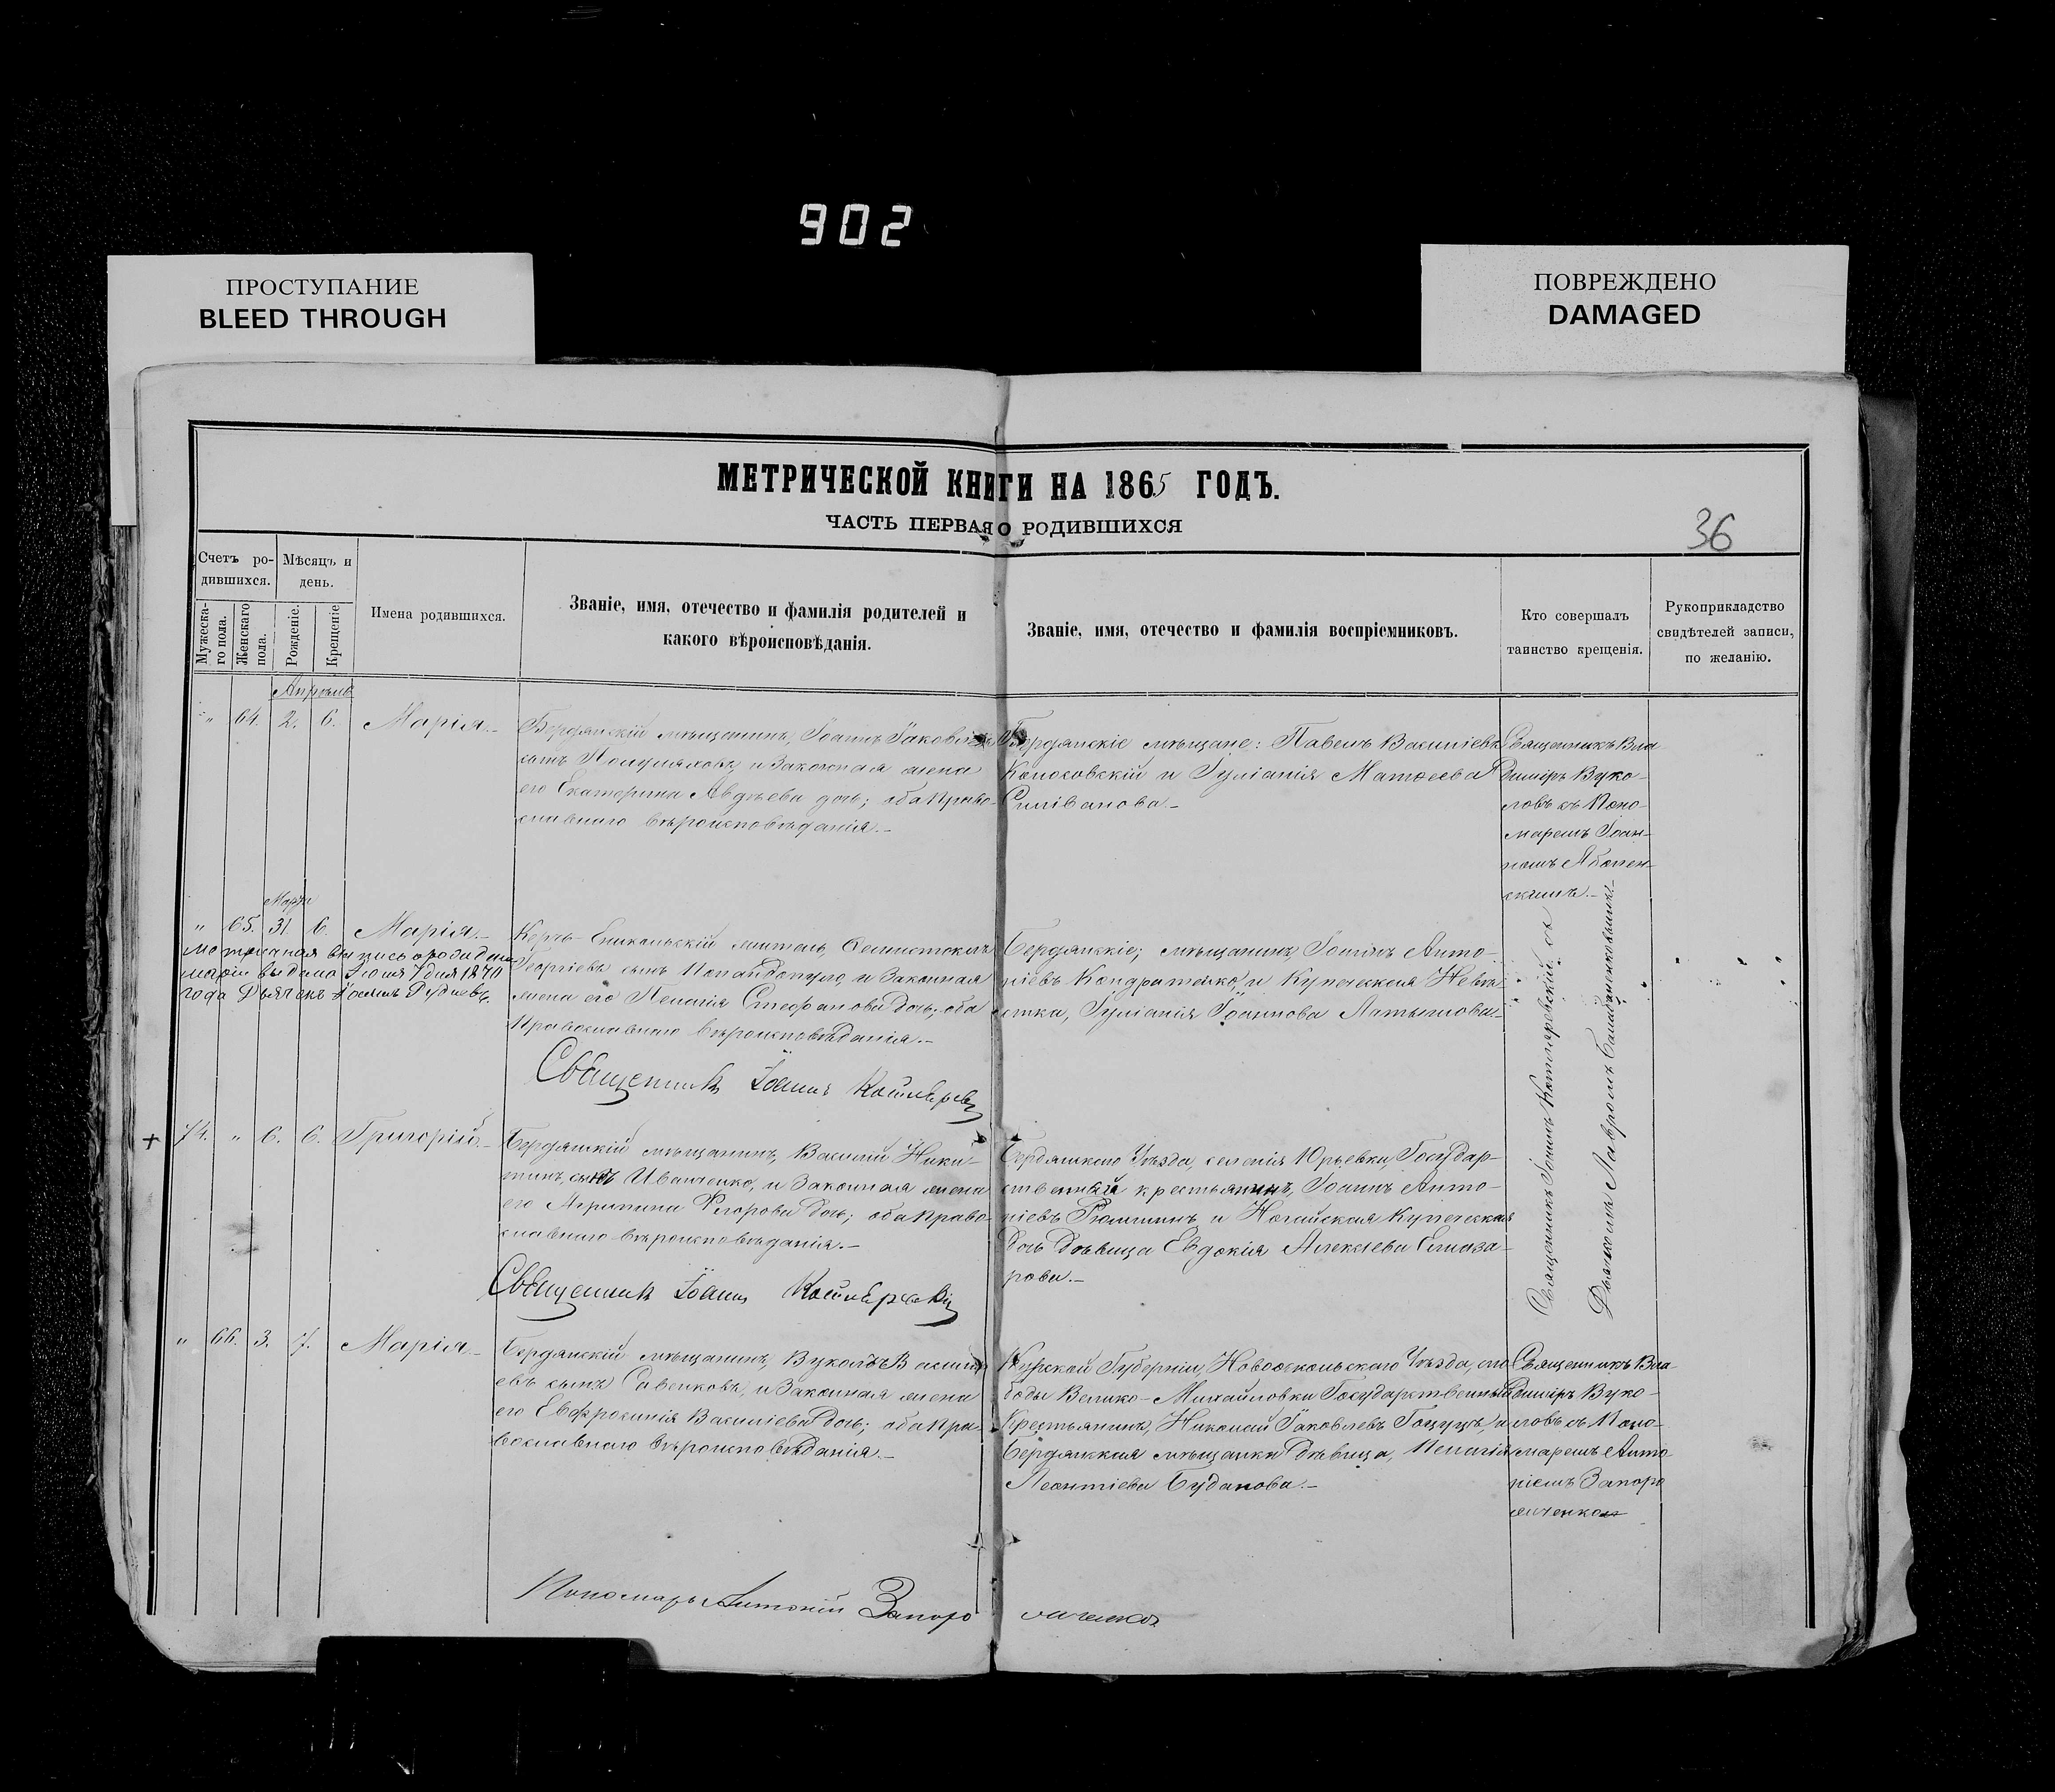 902
ПРОСТУПАНИЕ
BLEED THROUGH
ПОВРЕЖДЕНО
DAMAGED
МЕТРИЧЕСКОЙ КНИГИ НА 1865 ГОДЪ.
ЧАСТЬ ПЕРВАЯ О РОДИВШИХСЯ
36
Счетъ ро-
дившихся.
Мужеска-
го пола.
Женскаго
пола.
Мѣсяцъ и
день.
Рожденіе.
Крещеніе
Имена родившихся.
Званіе, имя, отечество и фамилія родителей и
какого вѣроисповѣданія.
Званіе, имя, отечество и фамилія воспріемниковъ.
Кто совершалъ
таинство крещенія.
Рукоприкладство
свидѣтелей записи,
по желанію.
Апрѣль
" 64. 2. 6. Марія.-
Бердянскій мѣщанинъ, Іоаннъ Іаковлевъ
сынъ и Законная жена
его Екатерина Авдѣева дочь; оба право-
славнаго вѣроисповѣданія.-
Бердянскіе мѣщане: Павелъ Василіевъ
Колосовскій и Іуліанія Матѳеева
Силіванова.-
Священникъ Вла-
диміръ Вуко-
ловъ съ Поно-
маремъ Іоан-
номъ Яблон-
скимъ.-
Мартъ
" 65. 31. 6. Марія.-
Метричная выпись о рожденіи
Маріи выдана Іюня 7 дня 1870
года Дьячекъ
Керчь-Еникольскій житель,
Георгіевъ сынъ Попандопуло, и Законная
жена его Пелагія Стефанова дочь; оба
Православнаго вѣроисповѣданія.-
Бердянскіе; мѣщанинъ, Іоаннъ Анто-
ніевъ Кондратенко, и Купеческая Невѣ-
стка, Іуліанія Іоаннова
Священникъ Іоаннъ
Священникъ Іоаннъ Котляревскій съ
Дьякономъ Лавромъ
+ 74. " 6. 6. Григорій.-
Бердянскій мѣщанинъ, Василій Ники-
тинъ, сынъ Иванченко, и Законная жена
его Агрипина Ѳеодорова дочь; оба право-
славнаго вѣроисповѣданія.-
Бердянскаго Уѣзда, селенія Юрьевки, Государ-
ственный крестьянинъ, Іоаннъ Анто-
ніевъ и Ногайская Купеческая
дочь дѣвица Евдокія Алексѣева Елиза-
рова.-
Священникъ Іоаннъ
" 66. 3. 7. Марія.-
Бердянскій мѣщанинъ, Вуколъ Василі-
евъ сынъ Савенковъ, и Законная жена
его Евфросинія Василіева дочь; оба Пра-
вославнаго вѣроисповѣданія.-
Курской Губерніи, Новооскольскаго Уѣзда, сло-
боды Велико-Михайловки Государственный
Крестьянинъ, Николай Іаковлевъ и
Бердянская мѣщанка дѣвица, Пелагія
Леонтіева Буданова.-
Священникъ Вла-
диміръ Вуко-
ловъ съ Поно-
маремъ Анто-
ніемъ Запоро
женкомъ
Пономарь Антоній Запорожченко